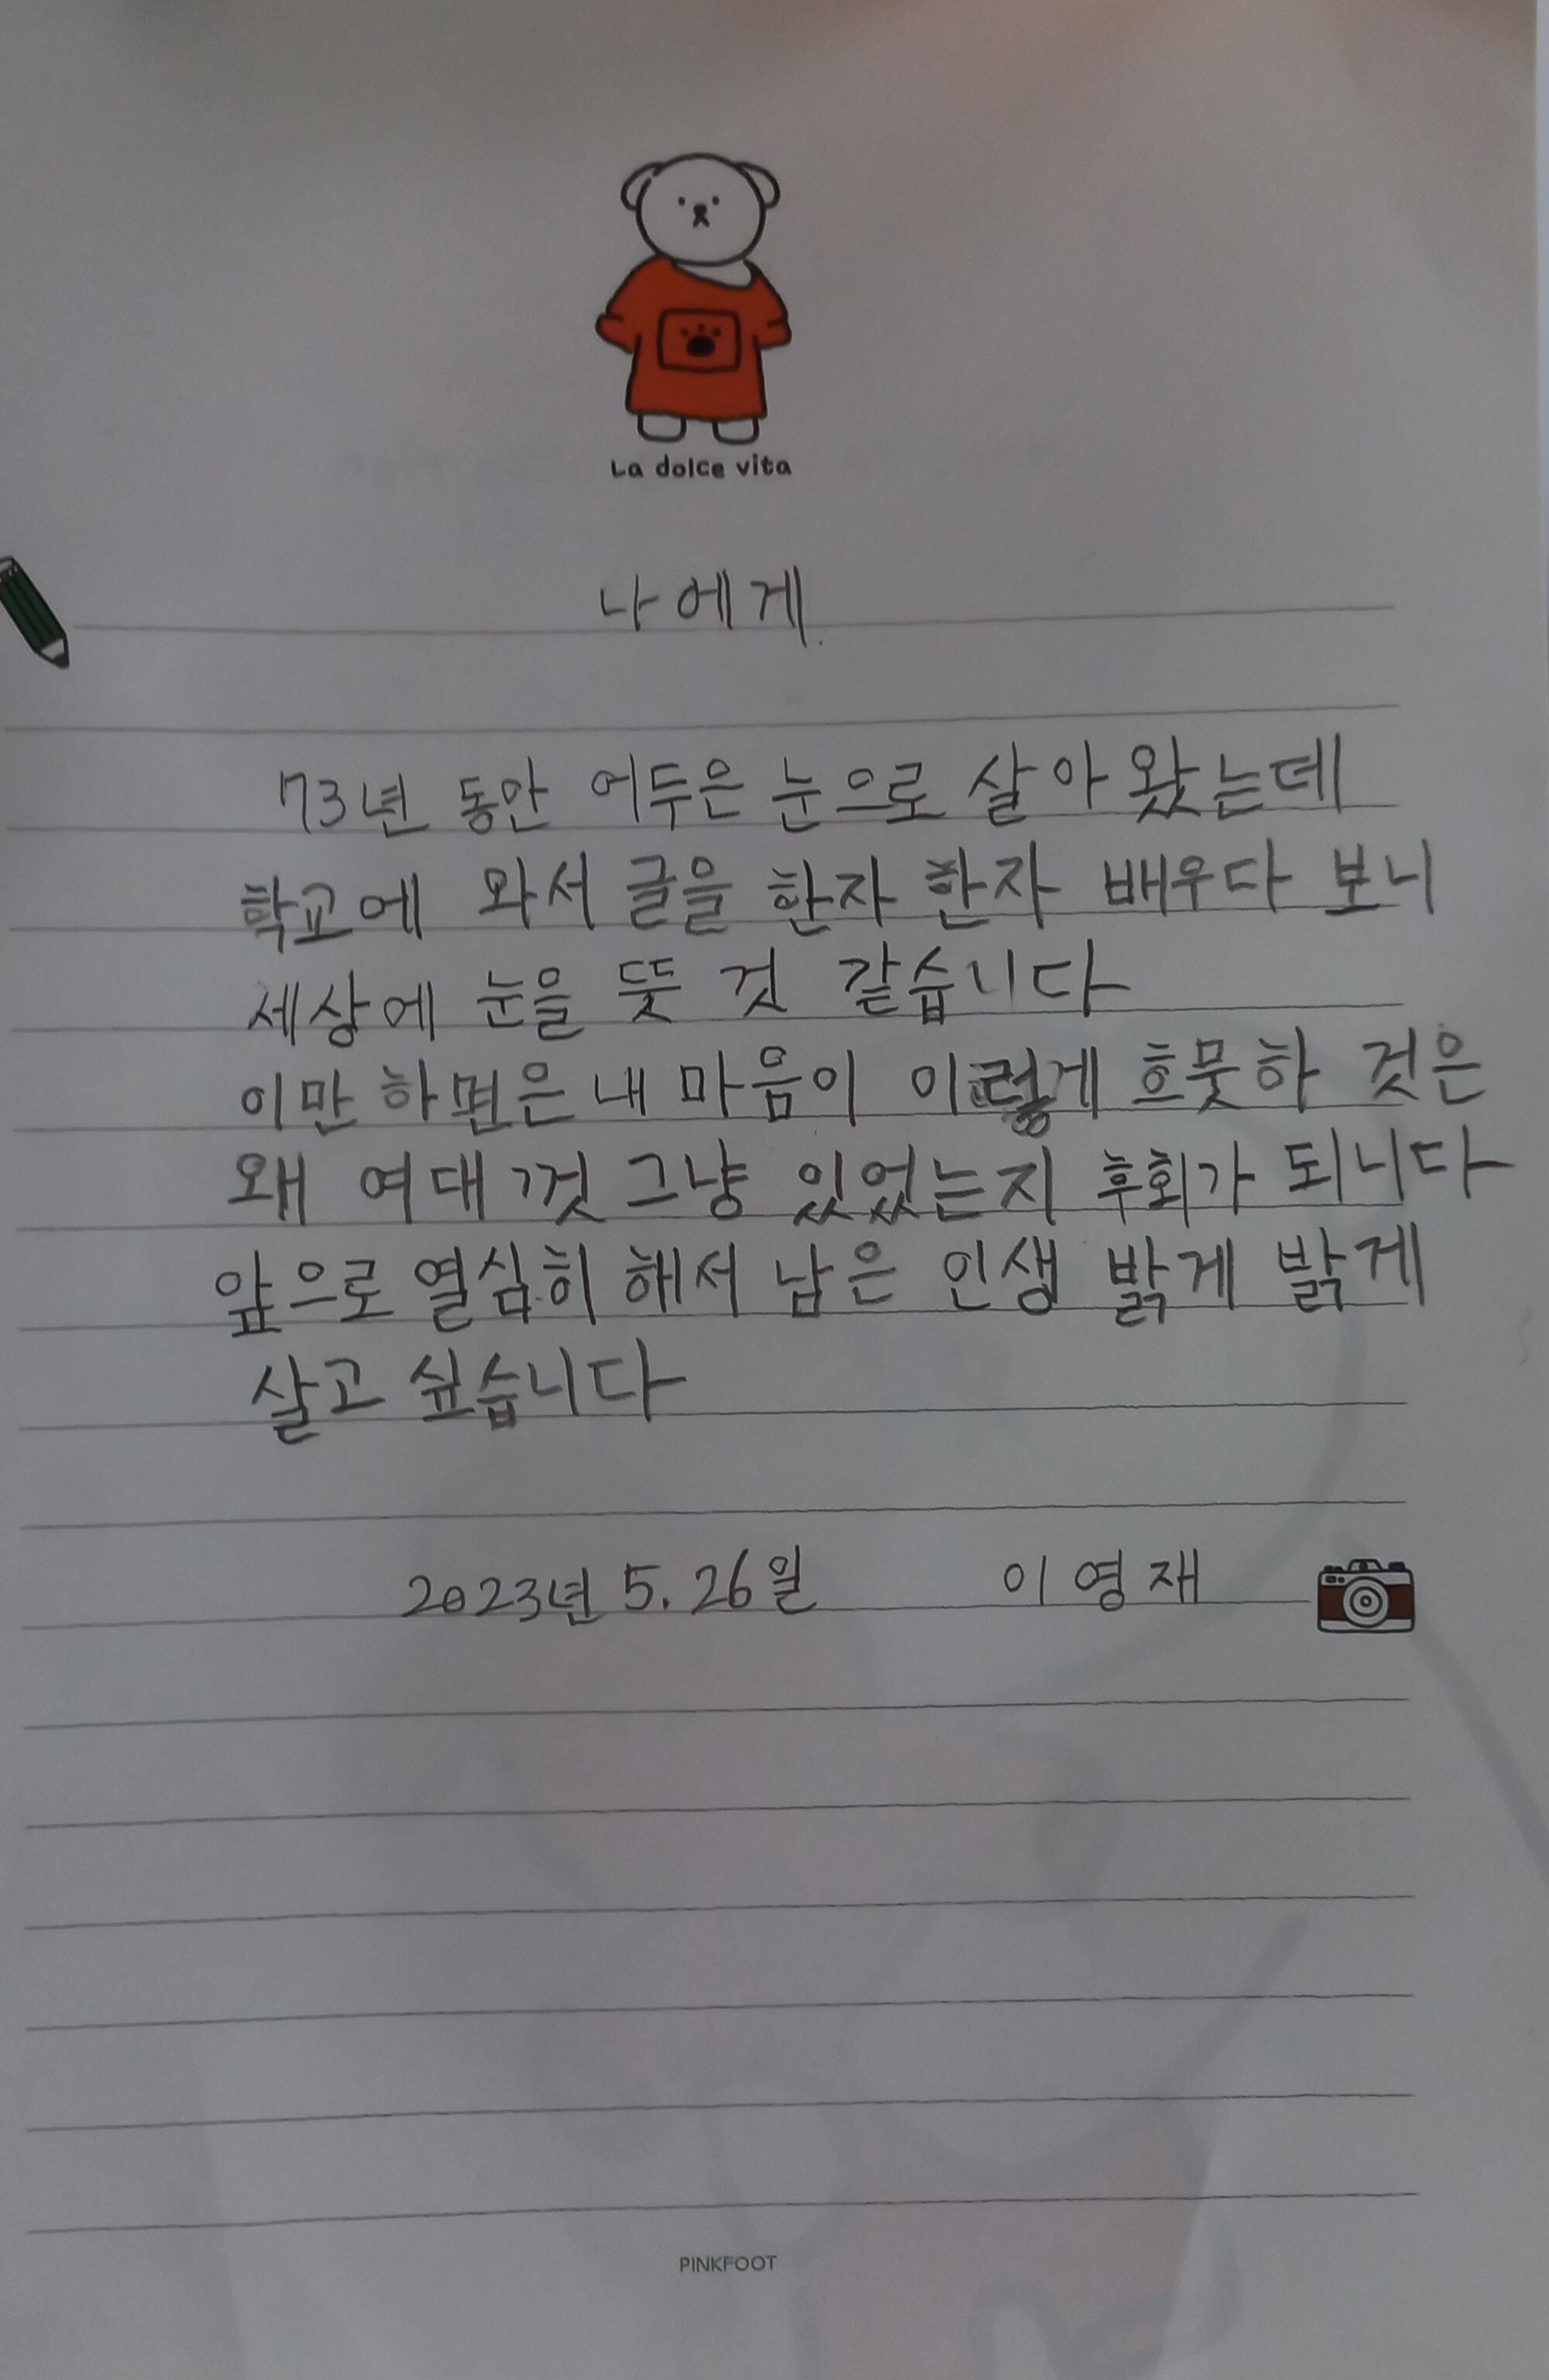 La dolce vita
나에게.
73년 동안 어두은 눈으로 살아 왔는데
학교에 와서 글을 한자 한자 배우다 보니
세상에 눈을 뜻 것 같습니다
이만 하면은 내 마음이 이렇게 흐뭇하 것은
왜 여대 껏 그냥 있었는지 후회가 되니다
앞으로 열심히 해서 남은 인생 밝게 밝게
살고 싶습니다
2023년 5. 26일 이영재
PINKFOOT